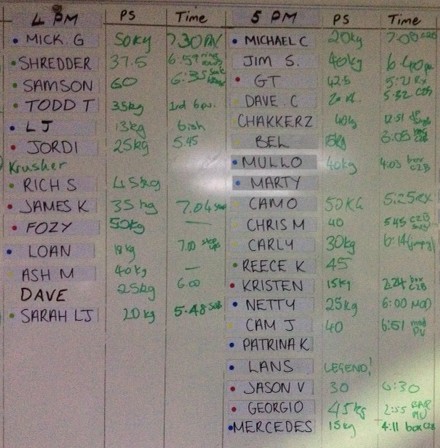 4 PM PS Time
MICK. G 50kg 7.30
SHREDDER 37.5 6:57
SAMSON 60 6:35
TODD T 35kg
LJ 13kg 6ish
JORDI 25kg 5.45
Krusher
RICH S 45kg
JAMES K 35kg 7.04
FOZY 50kg —
LOAN 18kg 7.00
ASH M 40kg —
DAVE 25kg 6.00
SARAH LJ 20kg 5.48
5 PM PS Time
MICHAEL C 20kg 7.00
JIM S. 40kg 6.40
GT 42.5 5:21 Rx
DAVE. C 5:32
CHAKKERZ 40kg
BEL 15kg 6:05
MULLO 40kg 4:03
MARTY
CAMO 50KG 5:25 RX
CHRIS M 40 5.45
CARLY 30kg 6:14
REECE K 45
KRISTEN 15kg
NETTY 25kg 6:00 MOD
CAM J 40 6:51
PATRINA K
LANS LEGEND!
JASON V 30 6:30
GEORGIO 45kg 2:55
MERCEDES 15kg 4:11